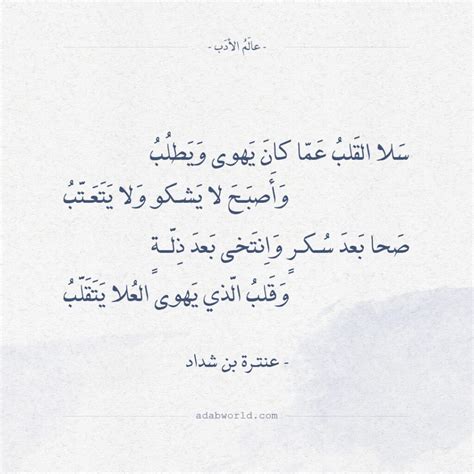 - عالَمُ الأدَب -
سَلا القَلبُ عَمّا كانَ يَهوى وَيَطلُبُ
وَأَصبَحَ لا يَشكو وَلا يَتَعَتّبُ
صَحا بَعدَ سُكرٍ وَاِنتَخى بَعدَ ذِلَّةٍ
وَقَلبُ الَّذي يَهوى العُلا يَتَقَلَّبُ
- عنترة بن شداد
adabworld.com